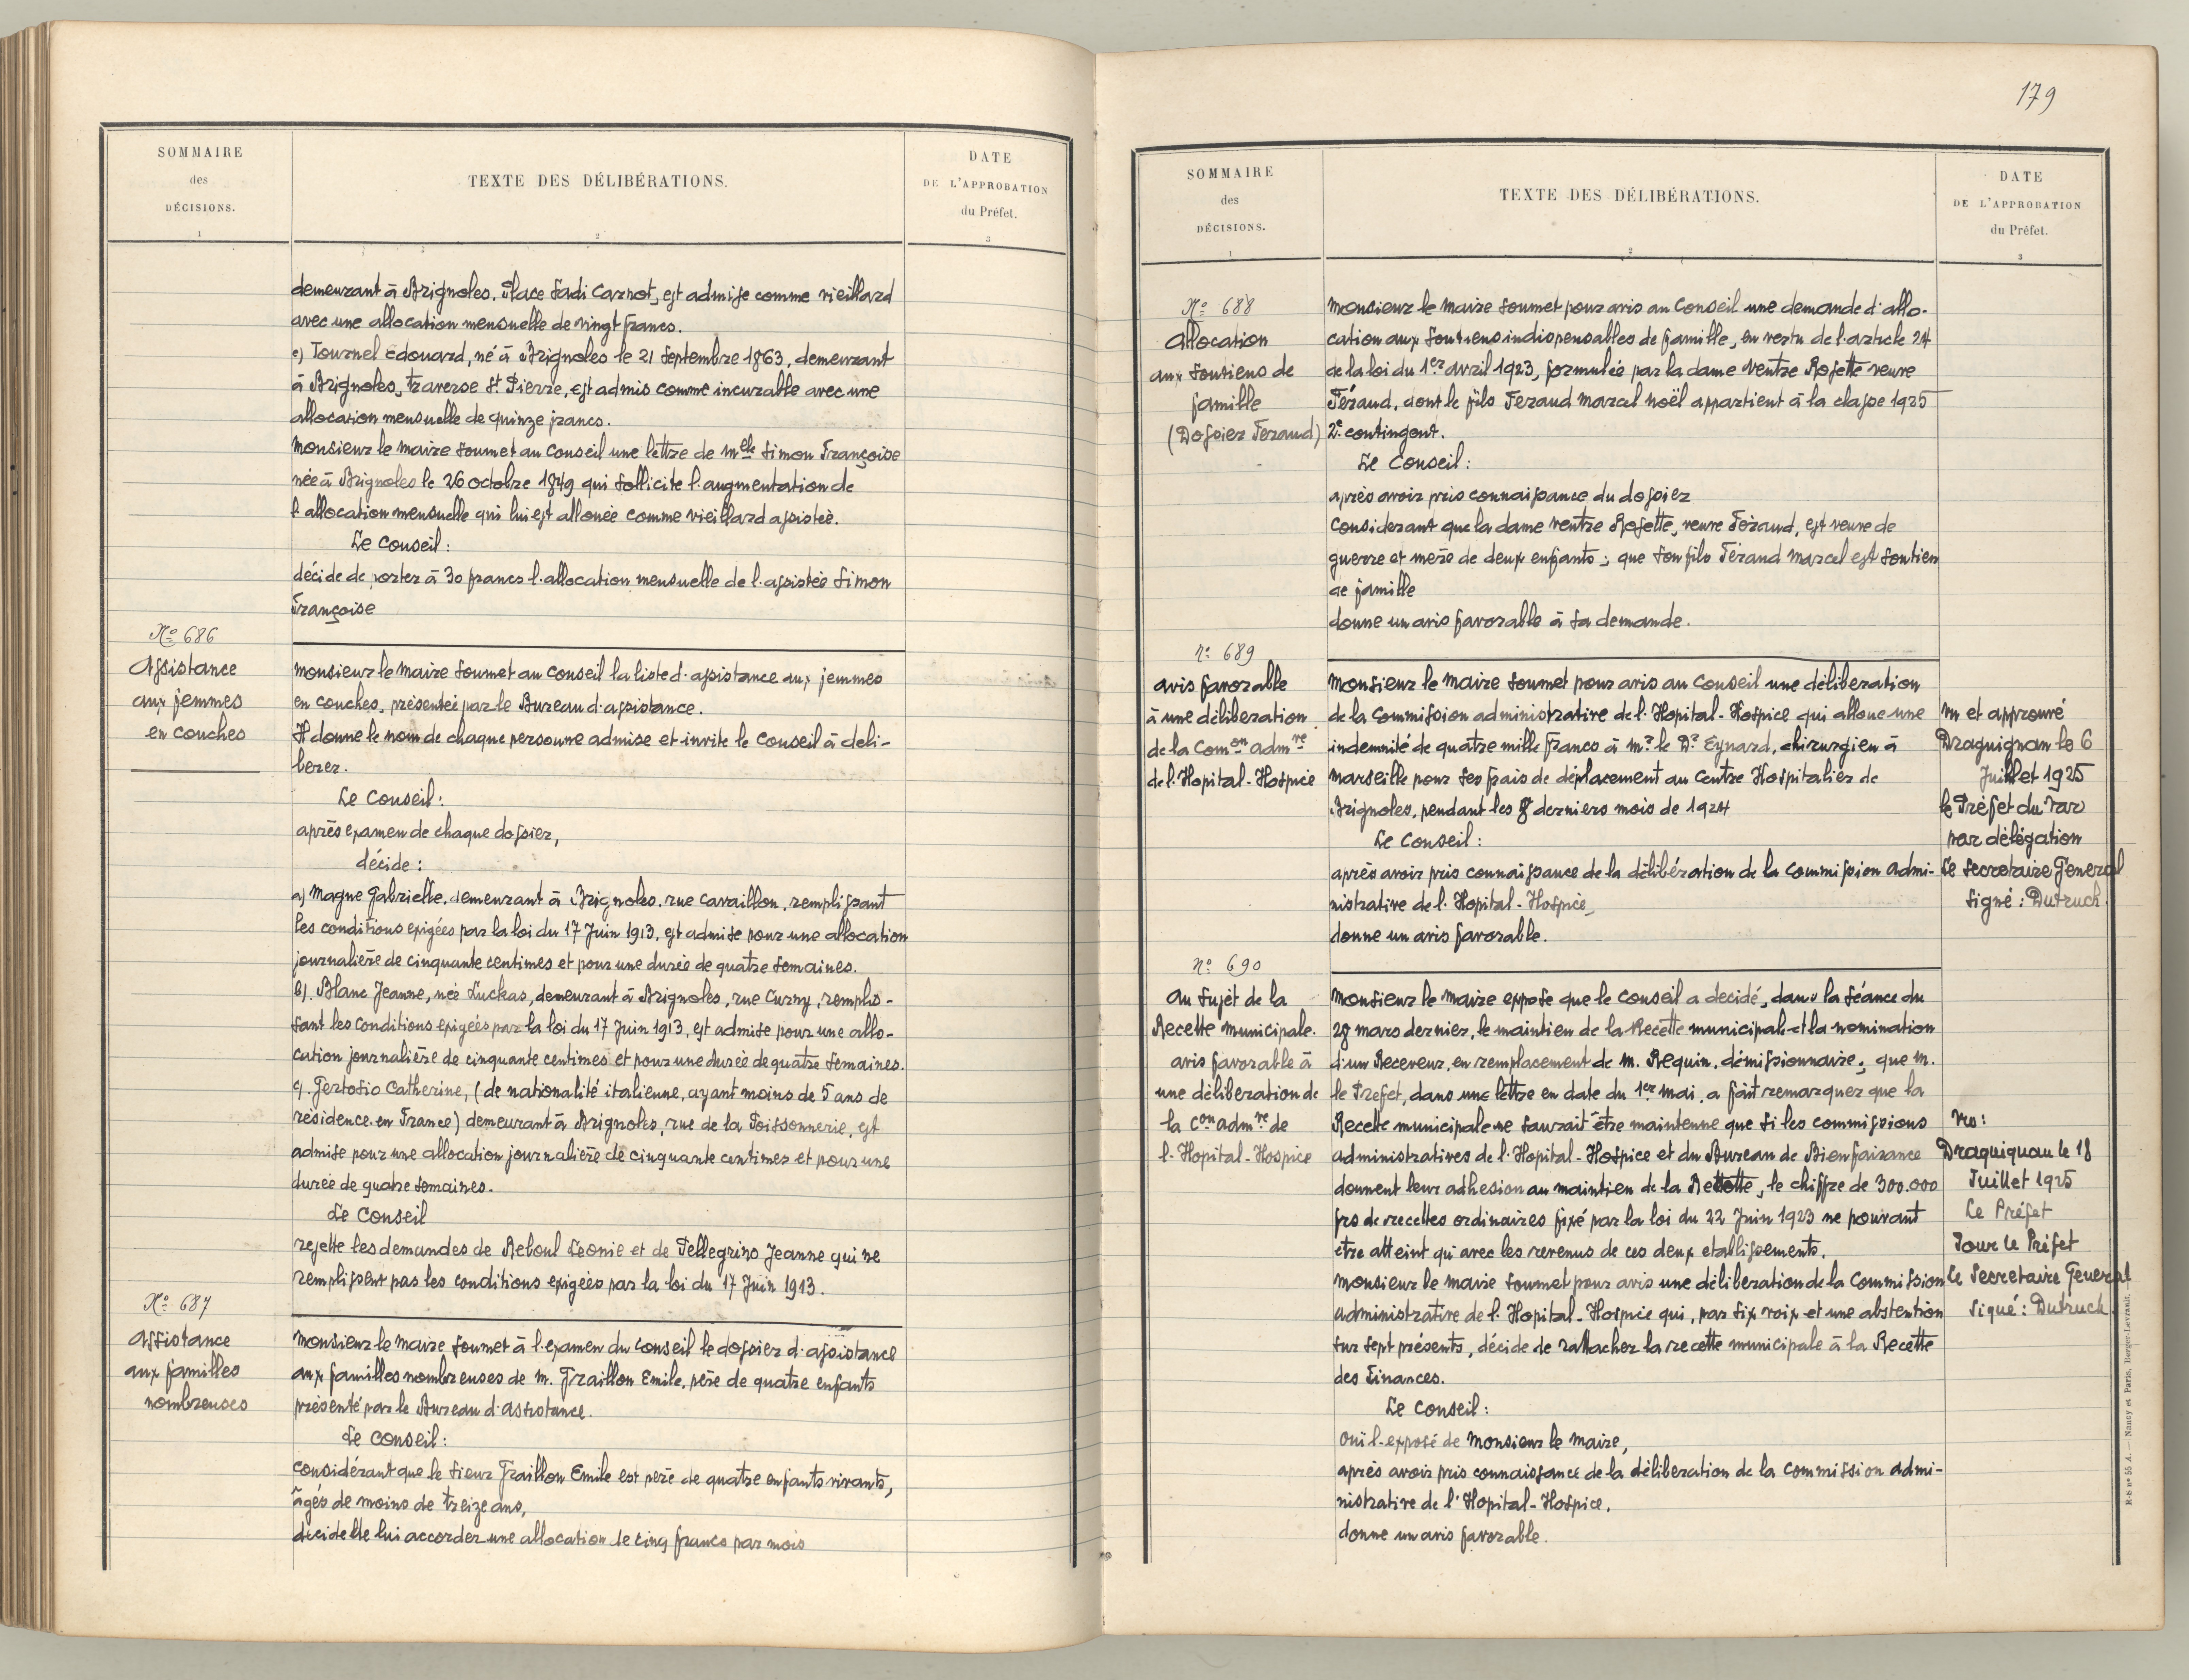 SOMMAIRE
des
DÉCISIONS.
1
TEXTE DES DÉLIBÉRATIONS.
2
DATE
DE L'APPROBATION
du Préfet.
3
demeurant à Brignoles. Place Sadi Carnot, est admise comme vieillard
avec une allocation mensuelle de vingt francs.
e) Tournel Edouard, né à Brignoles le 21 Septembre 1863, demeurant
à Brignoles, traverse St Pierre, est admis comme incurable avec une
allocation mensuelle de quinze francs.
Monsieur le Maire soumet au Conseil une lettre de Melle Simon Françoise
née à Brignoles le 26 octobre 1849 qui sollicite l'augmentation de
l'allocation mensuelle qui lui est allouée comme vieillard assistée.
Le Conseil :
décide de porter à 30 francs l'allocation mensuelle de l'assistée Simon
Françoise
No 686
Assistance
aux femmes
en couches
Monsieur le Maire soumet au Conseil la liste d'assistance aux femmes
en couches, présentée par le Bureau d'assistance.
Il donne le nom de chaque personne admise et invite le Conseil à déli-
berer.
Le Conseil :
après examen de chaque dossier,
décide :
a) Magne Gabrielle, demeurant à Brignoles, rue Cavaillon, remplissant
les conditions exigées par la loi du 17 Juin 1913, est admise pour une allocation
journalière de cinquante centimes et pour une durée de quatre semaines.
b). Blanc Jeanne, née Luckas, demeurant à Brignoles, rue Curny, remplis-
sant les conditions exigées par la loi du 17 Juin 1913, est admise pour une allo-
cation journalière de cinquante centimes et pour une durée de quatre semaines.
c). Gertosio Catherine, (de nationalité italienne, ayant moins de 5 ans de
résidence en France) demeurant à Brignoles, rue de la Poissonnerie, est
admise pour une allocation journalière de cinquante centimes et pour une
durée de quatre semaines.
Le Conseil
rejette les demandes de Reboul Leonie et de Pellegrino Jeanne qui ne
remplissent pas les conditions exigées par la loi du 17 Juin 1913.
No 687
Assistance
aux familles
nombreuses
Monsieur le Maire soumet à l'examen du Conseil le dossier d'assistance
aux familles nombreuses de M. Graillon Emile, père de quatre enfants
présenté par le Bureau d'Assistance.
Le Conseil :
considérant que le sieur Graillon Emile est père de quatre enfants vivants,
âgés de moins de treize ans,
décide de lui accorder une allocation de cinq francs par mois
179
SOMMAIRE
des
DÉCISIONS.
1
TEXTE DES DÉLIBÉRATIONS.
2
DATE
DE L'APPROBATION
du Préfet.
3
No 688
Allocation
aux soutiens de
famille
(Dossier Feraud)
Monsieur le Maire soumet pour avis au Conseil une demande d'allo-
cation aux soutiens indispensables de famille, en vertu de l'article 24
de la loi du 1er avril 1923, formulée par la dame Ventre Rosette veuve
Féraud, dont le fils Feraud Marcel Noël appartient à la classe 1925
2e contingent.
Le Conseil :
après avoir pris connaissance du dossier
Considerant que la dame Ventre Rosette, veuve Féraud, est veuve de
guerre et mère de deux enfants ; que son fils Féraud Marcel est soutien
de famille
donne un avis favorable à sa demande.
no 689
avis favorable
à une déliberation
de la Comon admve
de l'Hopital-Hospice
Monsieur le Maire soumet pour avis au Conseil une déliberation
de la Commission administrative de l'Hopital-Hospice qui alloue une
indemnité de quatre mille francs à Mr le Dr Eynard, chirurgien à
Marseille pour ses frais de déplacement au Centre Hospitalier de
Brignoles, pendant les 8 derniers mois de 1924
Le Conseil :
après avoir pris connaissance de la délibération de la Commission Admi-
nistrative de l'Hopital-Hospice,
donne un avis favorable.
Vu et approuvé
Draguignan le 6
Juillet 1925
le Préfet du Var
par délégation
Le Secretaire General
Signé : Dutruch.
no 690
Au sujet de la
Recette Municipale.
avis favorable à
une déliberation de
la Con admve de
l'Hopital-Hospice
Monsieur le Maire expose que le Conseil a decidé, dans la séance du
28 mars dernier, le maintien de la Recette municipale et la nomination
d'un Receveur, en remplacement de M. Requin, démissionnaire ; que M.
le Prefet, dans une lettre en date du 1er Mai, a fait remarquer que la
Recette municipale ne saurait être maintenue que si les commissions
administratives de l'Hopital-Hospice et du Bureau de Bienfaisance
donnent leur adhesion au maintien de la Rettette, le chiffre de 300.000
frs de recettes ordinaires fixé par la loi du 22 Juin 1923 ne pouvant
etre atteint qu'avec les revenus de ces deux etablissements.
Monsieur le Maire soumet pour avis une déliberation de la Commission
administrative de l'Hopital-Hospice qui, par six voix et une abstention
sur sept présents, décide de rattacher la recette municipale à la Recette
des Finances.
Le Conseil :
oui l'exposé de Monsieur le Maire,
après avoir pris connaissance de la déliberation de la Commission admi-
nistrative de l'Hopital-Hospice.
donne un avis favorable.
Vu :
Draguignan le 18
Juillet 1925
Le Préfet
Pour le Préfet
Le Secretaire General
Signé : Dutruch.
R-b n° 55 A. — Nancy et Paris, Berger-Levrault.